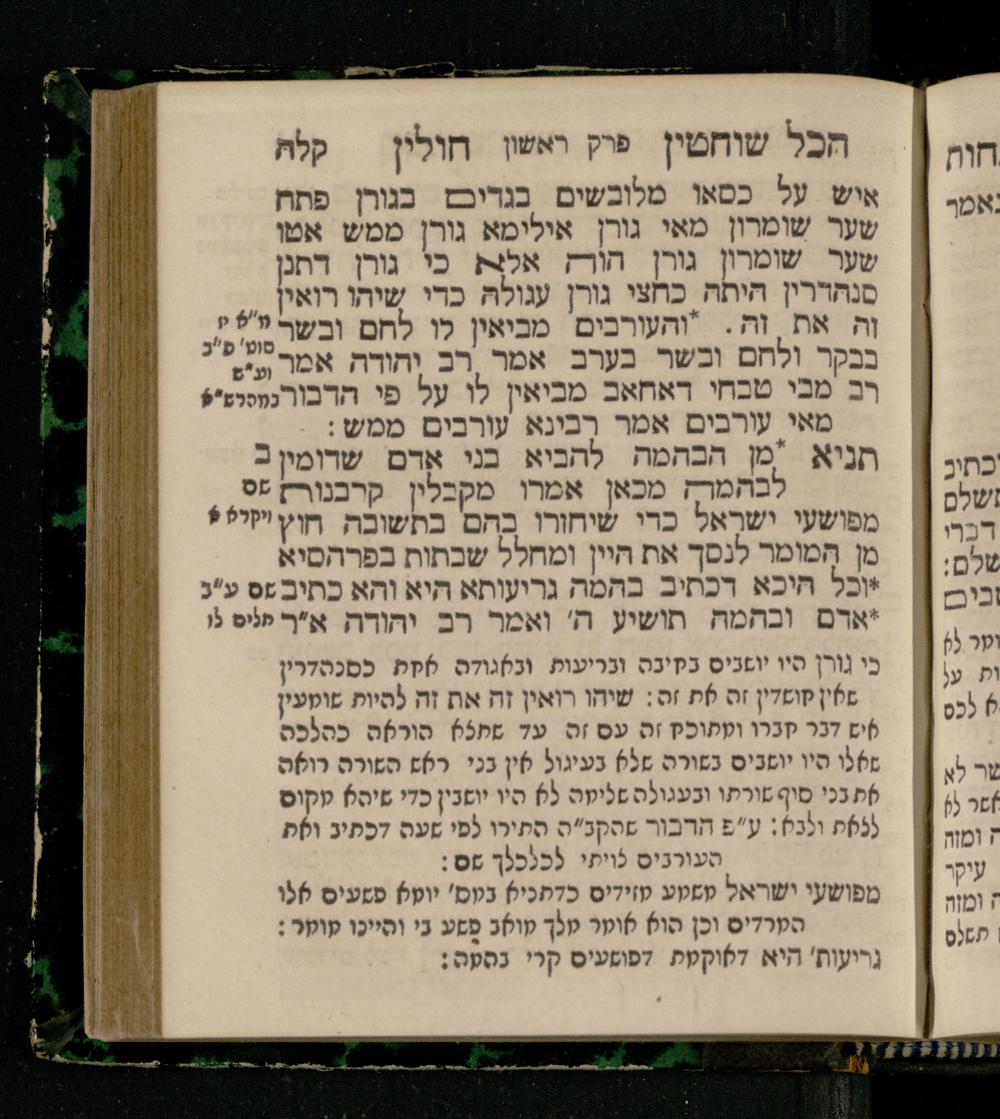 הכל שוחטין פרק ראשון חולין קלה
איש על כסאו מלובשים בגדים בגורן פתח
שער שומרון מאי גורן אילימא גורן ממש אטו
שער שומרון גורן הוה אלא כי גורן דתנן
סנהדרין היתה כחצי גורן עגולה כדי שיהו רואין
זה את זה. *והעורבים מביאין לו לחם ובשר
בבקר ולחם ובשר בערב אמר רב יהודה אמר
רב מבי טבחי דאחאב מביאין לו על פי הדבור
מאי עורבים אמר רבינא עורבים ממש:
תניא *מן הבהמה להביא בני אדם שדומין
לבהמה מכאן אמרו מקבלין קרבנות
מפושעי ישראל כדי שיחזרו בהם בתשובה חוץ
מן המומר לנסך את היין ומחלל שבתות בפרהסיא
*וכל היכא דכתיב בהמה גריעותא היא והא כתיב
*אדם ובהמה תושיע ה' ואמר רב יהודה א"ר
מ"א יז
סוט' פ"ב
וע"ש
במהרש"א
ב
שם
ויקרא א
שם ע"ב
תלים לו
כי גורן היו יושבים בקיבה ובריעות ובאגודה אחת כסנהדרין
שאין קושדין זה את זה: שיהו רואין זה את זה להיות שומעין
איש דבר חברו ומתוכח זה עם זה עד שתצא הוראה כהלכה
שאלו היו יושבים בשורה שלא בעיגול אין בני ראש השורה רואה
את בני סוף שורתו ובעגולה שלימה לא היו יושבין כדי שיהא מקום
לצאת ולבא: ע"פ הדבור שהקב"ה התירו לפי שעה דכתיב ואת
העורבים צויתי לכלכלך שם:
מפושעי ישראל משמע מזידים כדתניא במס' יומא פשעים אלו
המרדים וכן הוא אומר מלך מואב פשע בי והיינו מומר:
גריעות' היא דאוקמת דפושעים קרי בהמה:
חות
נאמר
דכתיב
תשלם
דברי
שלם:
ומר לא
לכס
אשר לא
ומזה
עיקר
ומזה
תשלם